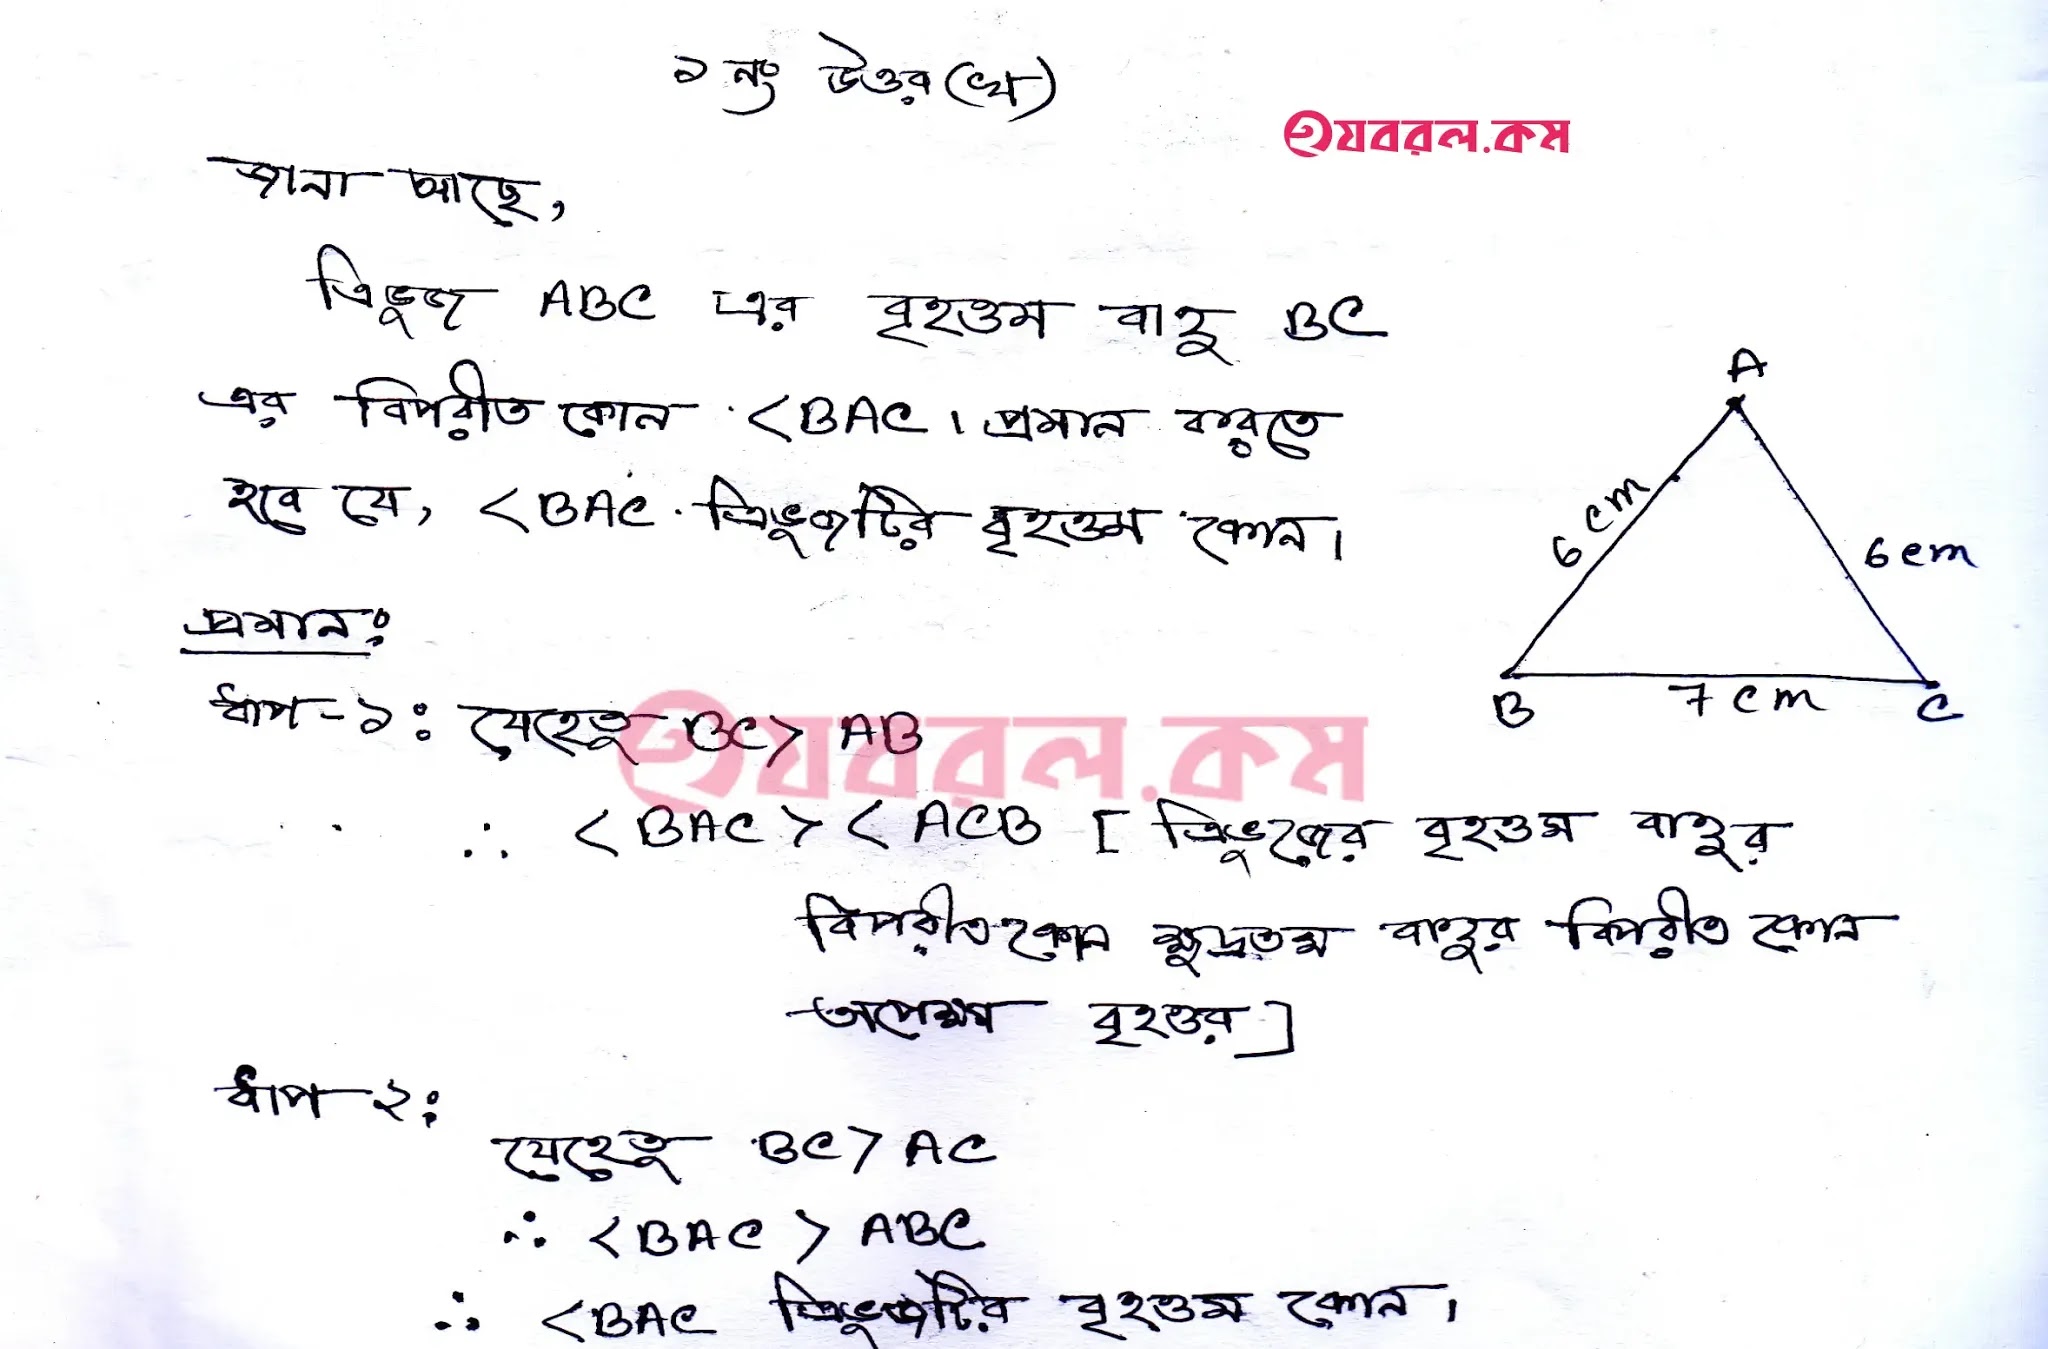 ১ নং উত্তর (খ)
হযবরল.কম
জানা আছে,
ত্রিভুজ ABC এর বৃহত্তম বাহু BC
এর বিপরীত কোন <BAC । প্রমান করতে
হবে যে, <BAC ত্রিভুজটির বৃহত্তম কোন।
A
6 cm
6 cm
B
7 cm
C
প্রমানঃ
ধাপ-১ঃ যেহেতু BC > AB
হযবরল.কম
∴ <BAC > <ACB [ ত্রিভুজের বৃহত্তম বাহুর
বিপরীত কোন ক্ষুদ্রতম বাহুর বিপরীত কোন
অপেক্ষা বৃহত্তর ]
ধাপ-২ঃ
যেহেতু BC > AC
∴ <BAC > ABC
∴ <BAC ত্রিভুজটির বৃহত্তম কোন।